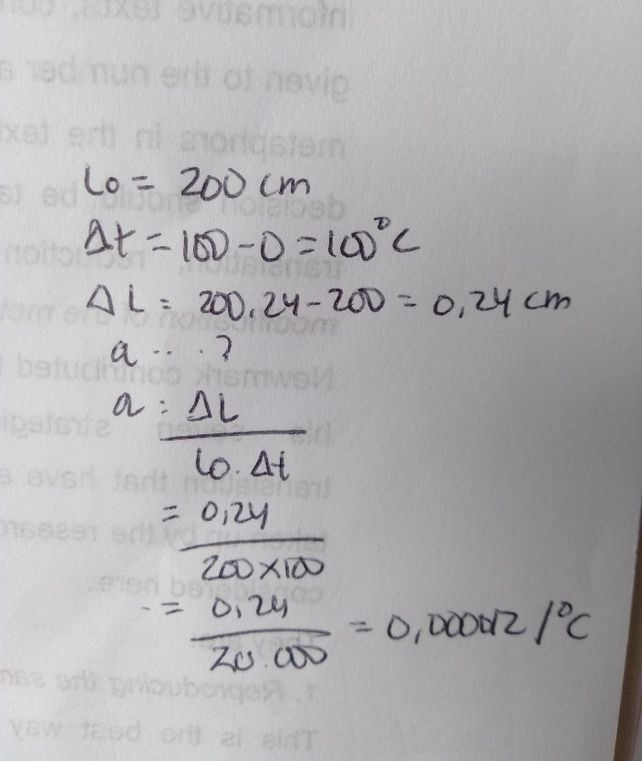 Lo = 200 cm
Δt = 100 - 0 = 100°C
ΔL = 200.24 - 200 = 0,24 cm
a .. . ?
a : ΔL
Lo. Δt
= 0,24
200 x 100
= 0,24
20.000
= 0,000012 /°C